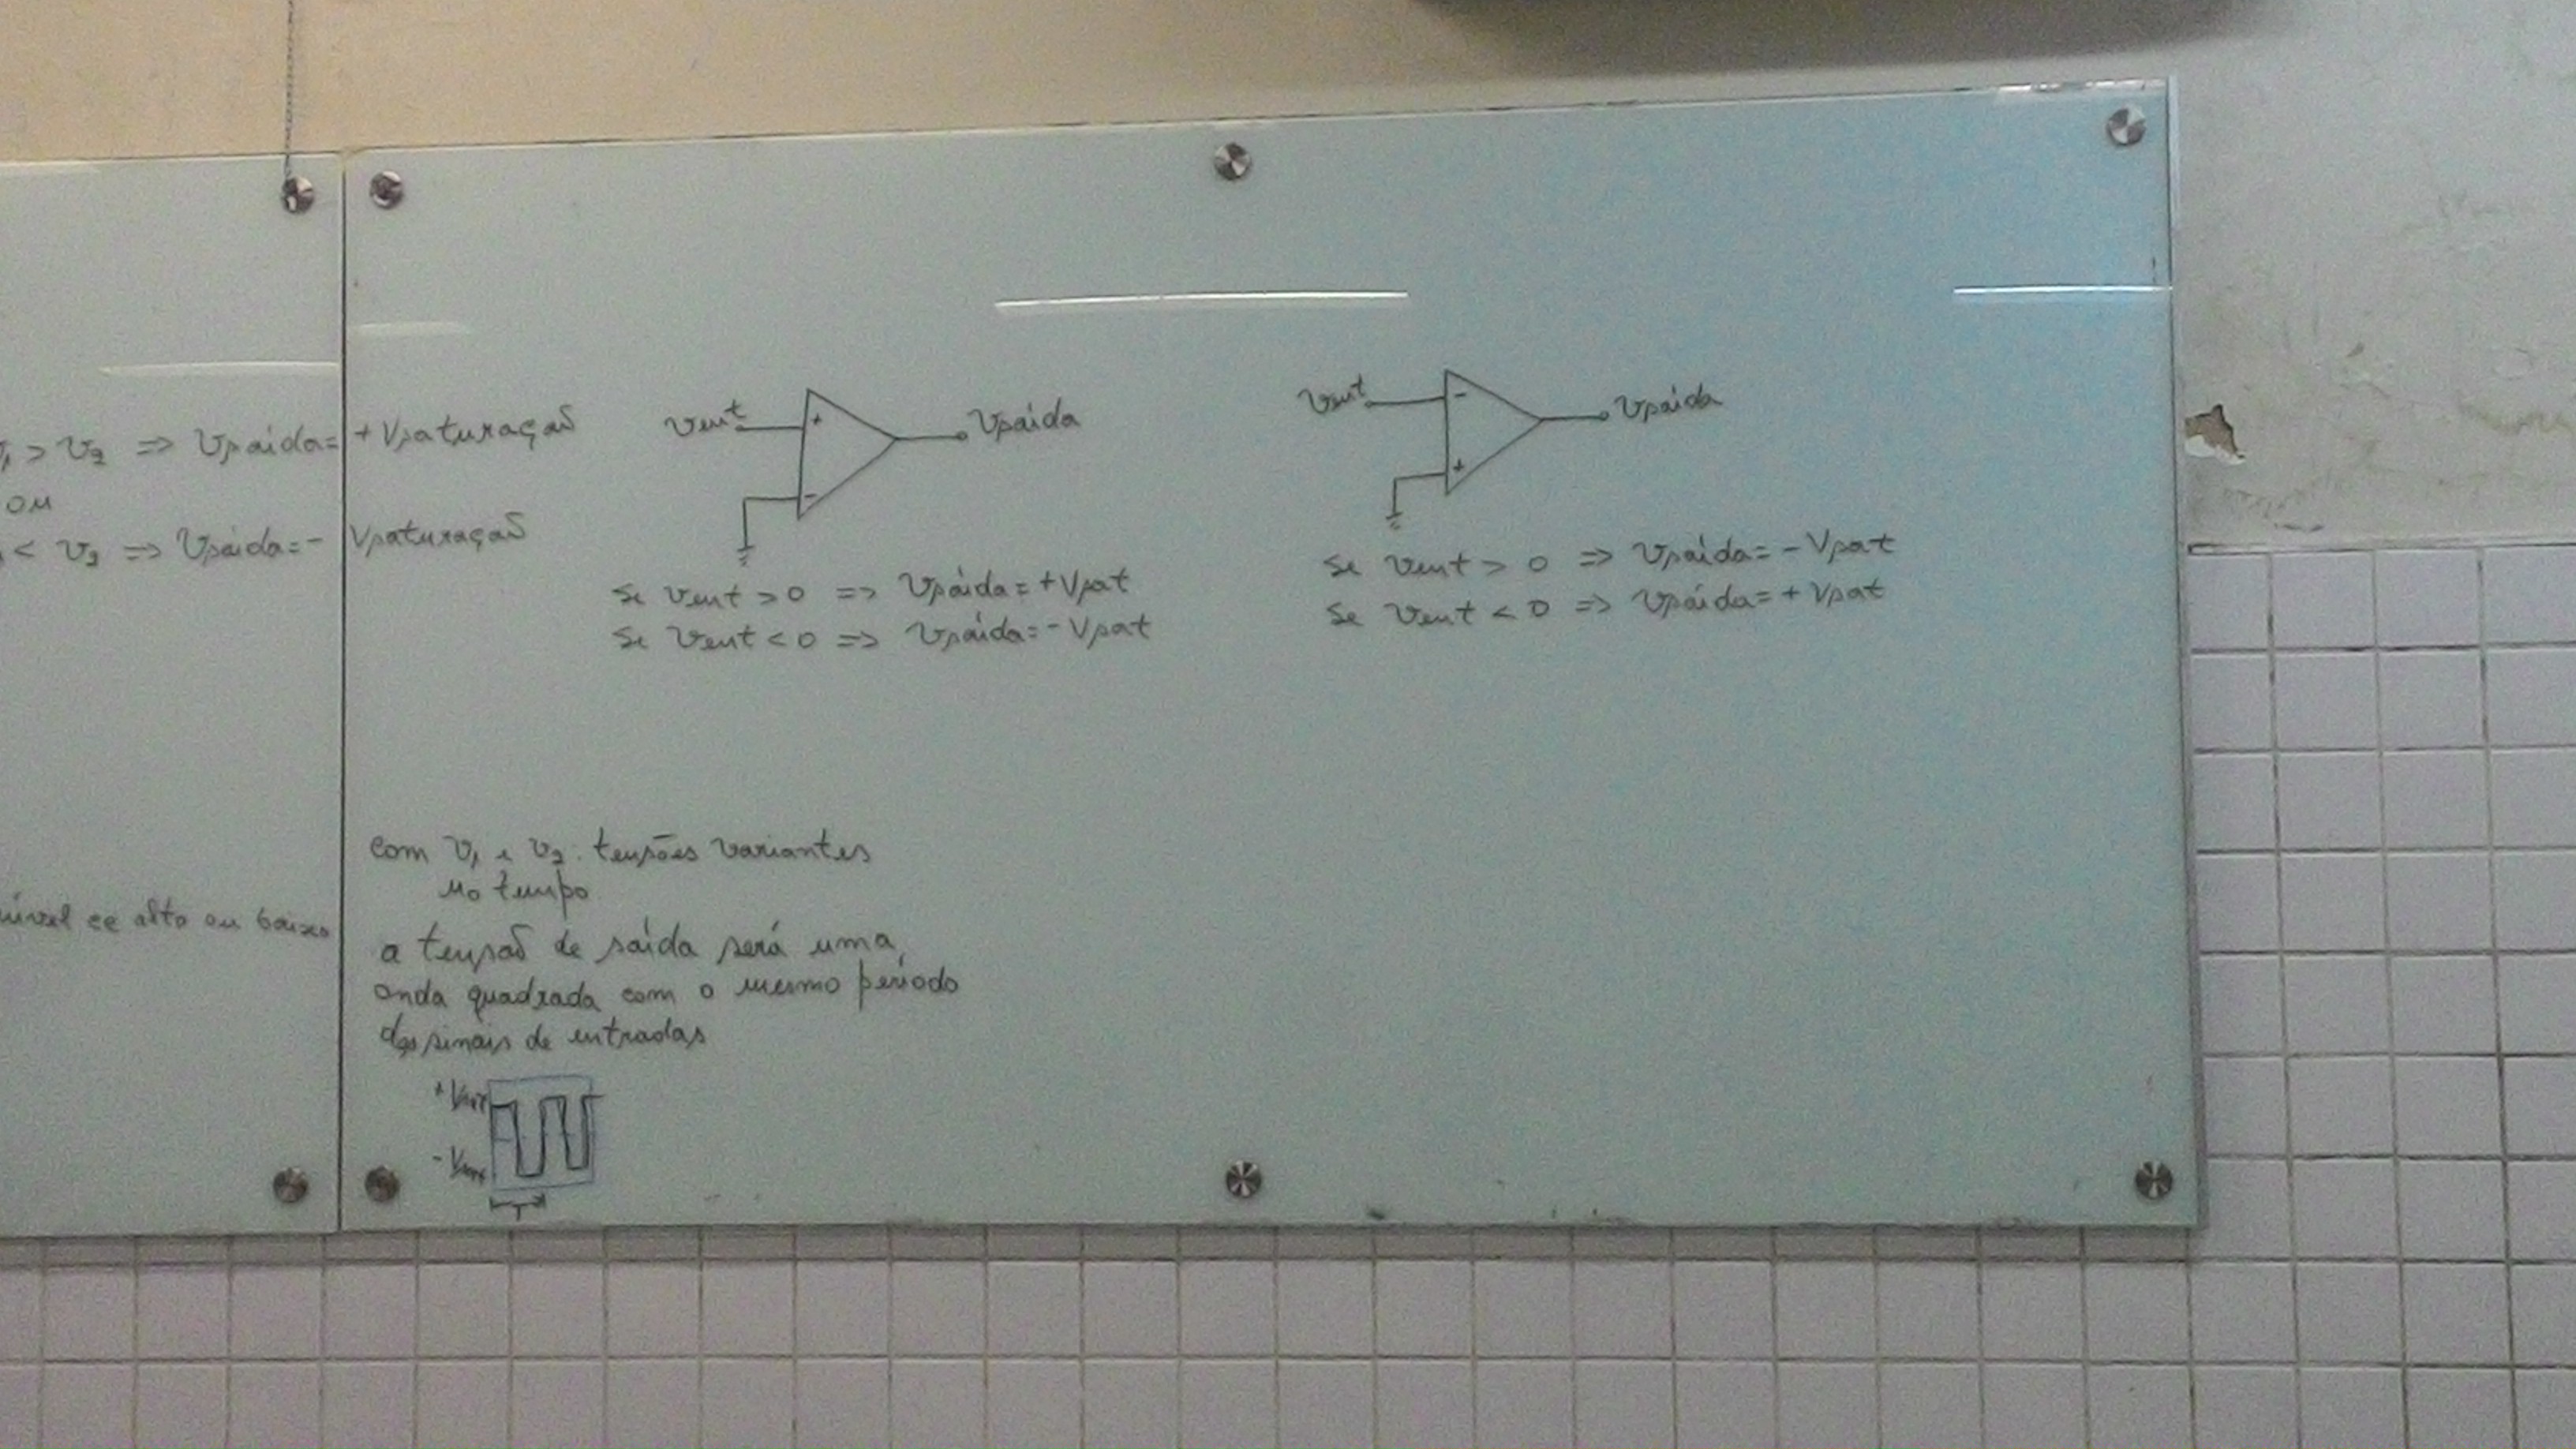 v₁ > v₂ => Vsaída = + Vsaturação
ou
< v₂ => Vsaída = - Vsaturação
vent + - Vsaída
Se vent > 0 => Vsaída = + Vsat
Se vent < 0 => Vsaída = - Vsat
vent - + Vsaída
Se vent > 0 => Vsaída = - Vsat
Se vent < 0 => Vsaída = + Vsat
com v₁ e v₂: tensões variantes
no tempo
nível alto ou baixo
a tensão de saída será uma
onda quadrada com o mesmo período
dos sinais de entradas
T